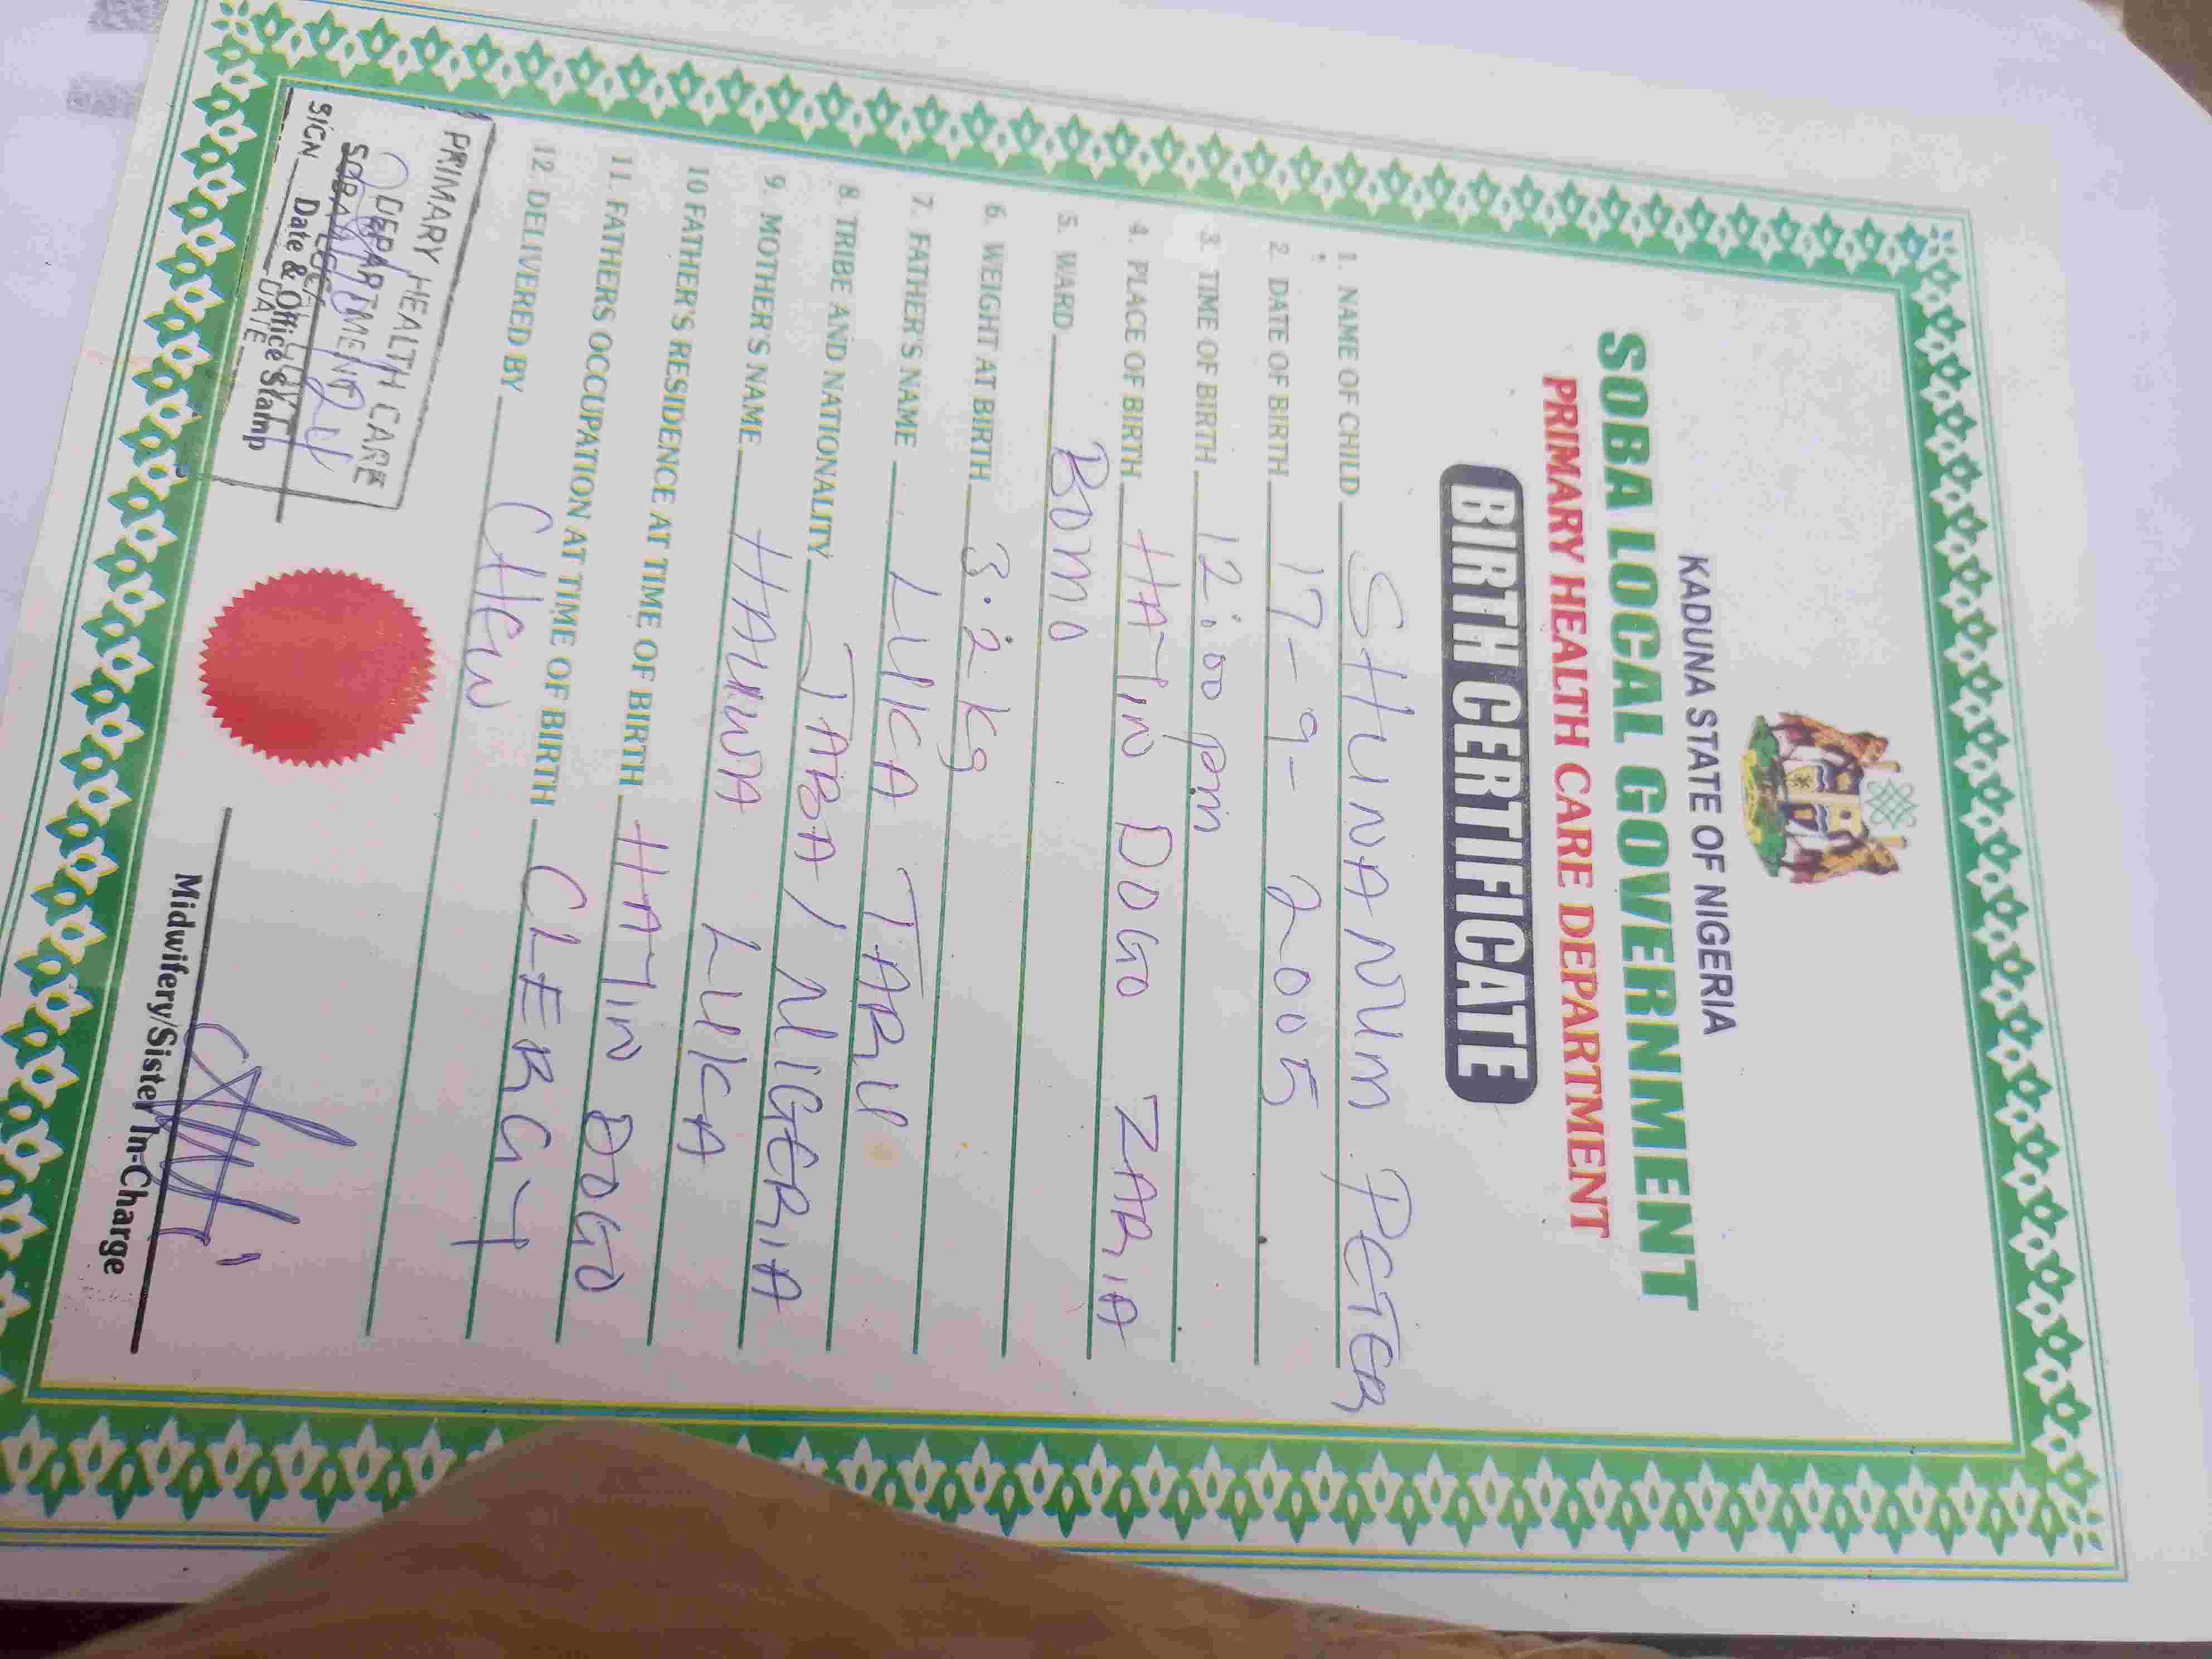 KADUNA STATE OF NIGERIA
SOBA LOCAL GOVERNMENT
PRIMARY HEALTH CARE DEPARTMENT
BIRTH CERTIFICATE
1. NAME OF CHILD SHUNANUM PETER
2. DATE OF BIRTH 17-9-2005
3. TIME OF BIRTH 12:00 pm
4. PLACE OF BIRTH HAYIN DOGO ZARIA
5. WARD BOMO
6. WEIGHT AT BIRTH 3.2 kg
7. FATHER'S NAME LUKA TARU
8. TRIBE AND NATIONALITY JABA / NIGERIA
9. MOTHER'S NAME HAUWA LUKA
10 FATHER'S RESIDENCE AT TIME OF BIRTH HAYIN DOGO
11. FATHERS OCCUPATION AT TIME OF BIRTH CLERGY
12. DELIVERED BY CHEW
PRIMARY HEALTH CARE
DEPARTMENT
SOBA
SIGN DATE
Date & Office Stamp
Midwifery/Sister In-Charge